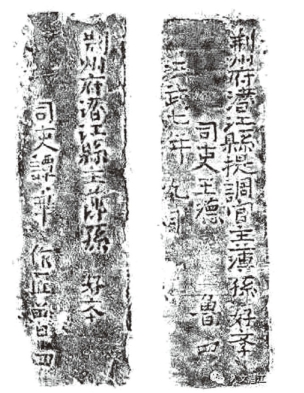 荆州府潜江縣提調官主薄孫好
司吏王德 魯四
洪武七年 九月
荆州府潜江縣主薄孫 好本
司吏譚 作匠